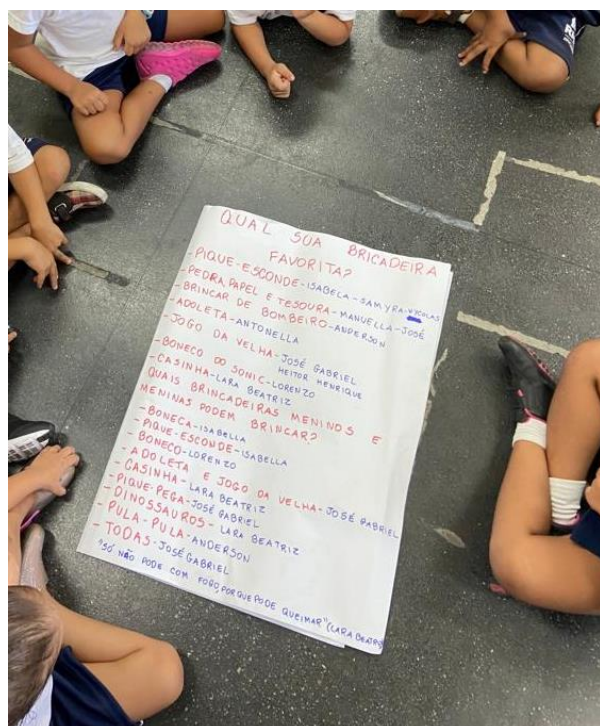 QUAL SUA BRICADEIRA
FAVORITA?
- PIQUE-ESCONDE-ISABELA-SAMYRA-NYCOLAS
- PEDRA, PAPEL E TESOURA-MANUELLA-JOSÉ
- BRINCAR DE BOMBEIRO-ANDERSON
- ADOLETA-ANTONELLA
- JOGO DA VELHA-JOSÉ GABRIEL
HEITOR HENRIQUE
- BONECO DO SONIC-LORENZO
- CASINHA-LARA BEATRIZ
QUAIS BRINCADEIRAS MENINOS E
MENINAS PODEM BRINCAR?
- BONECA-ISABELLA
- PIQUE-ESCONDE-ISABELLA
- BONECO-LORENZO
- ADOLETA E JOGO DA VELHA-JOSÉ GABRIEL
- CASINHA-LARA BEATRIZ
- PIQUE-PEGA-JOSÉ GABRIEL
- DINOSSAUROS-LARA BEATRIZ
- PULA-PULA-ANDERSON
- TODAS-JOSÉ GABRIEL
"SÓ NÃO PODE COM FOGO, PORQUE PODE QUEIMAR" (LARA BEATRIZ)